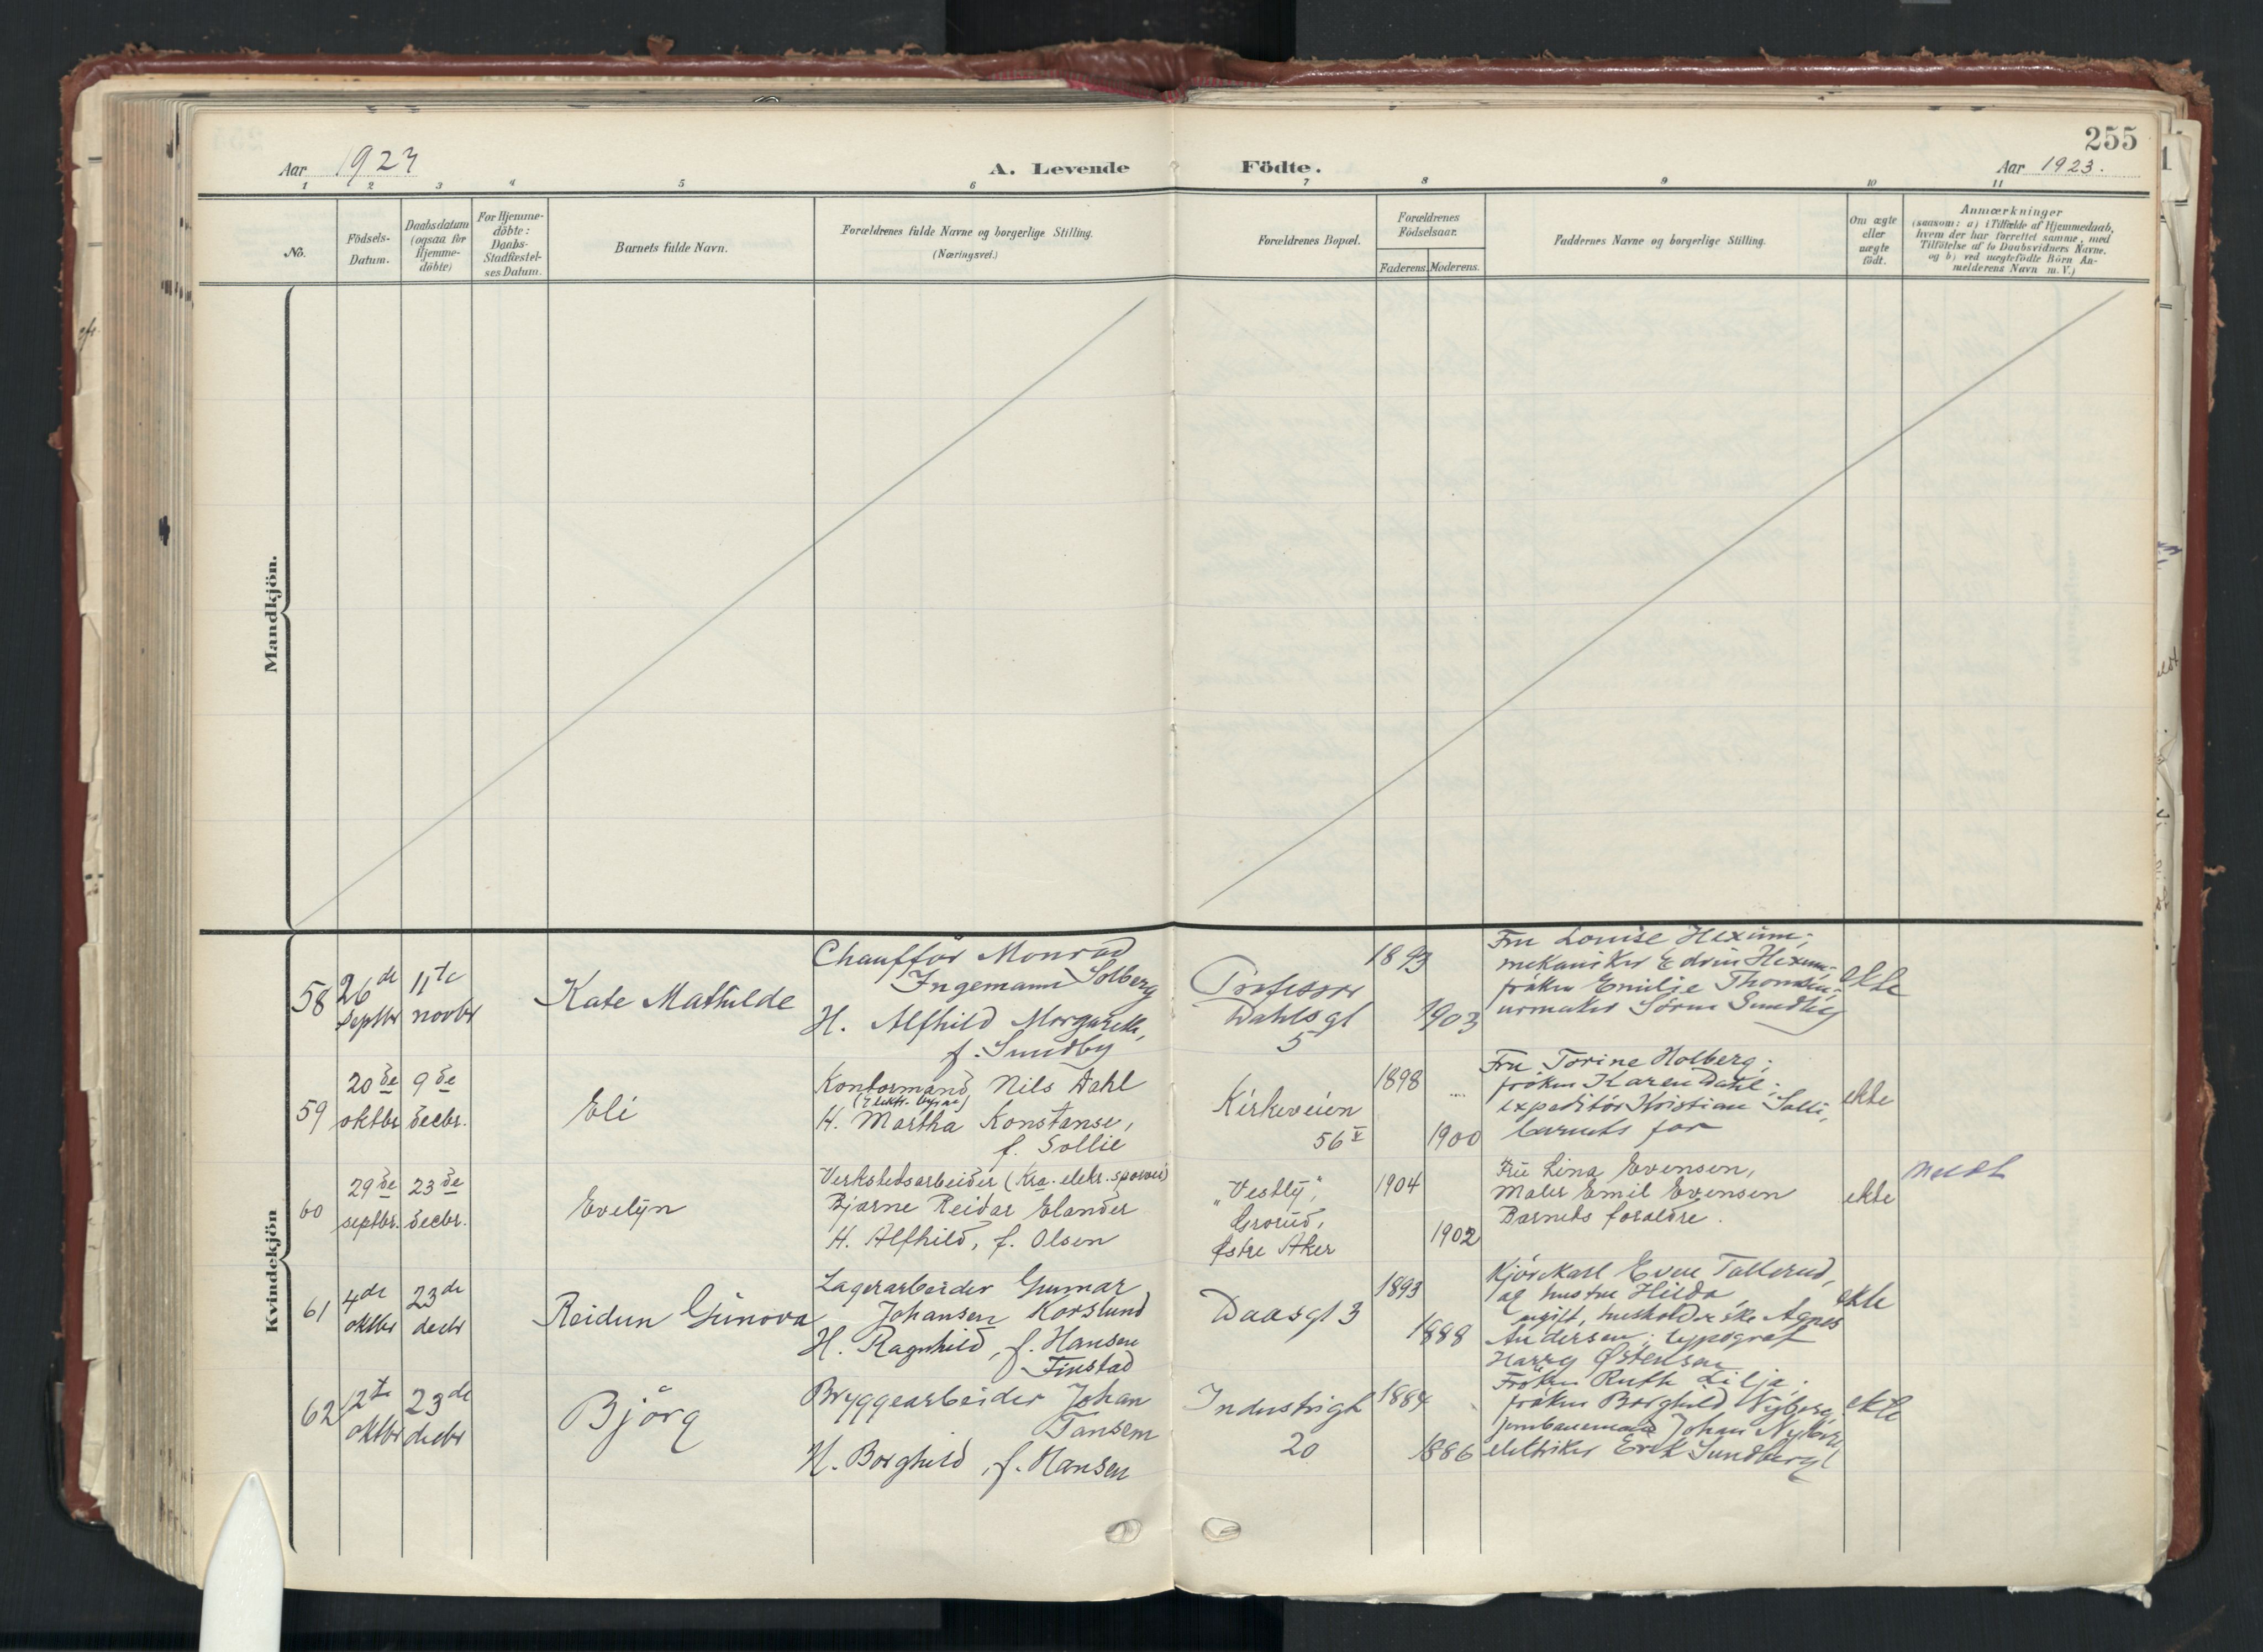 255
Aar 1923
A. Levende Födte.
Aar 1923.
1 2 3 4 5 6 7 8 9 10 11
No.
Födsels-
Datum.
Daabsdatum
(ogsaa for
Hjemme-
döbte)
For Hjemme-
döbte:
Daabs-
Stadfæstel-
ses Datum.
Barnets fulde Navn.
Forældrenes fulde Navne og borgerlige Stilling.
(Næringsvei.)
Forældrenes Bopæl.
Forældrenes
Födselsaar.
Faderens. Moderens.
Faddernes Navne og borgerlige Stilling.
Om ægte
eller
uægte
født.
Anmærkninger
(saasom: a) i Tilfælde af Hjemmedaab,
hvem der har forrettet samme, med
Tilföielse af to Daabsvidners Navne,
og b) ved uegtefödte Börn An-
melderens Navn m. V.)
Mandkjön.
Kvindekjön
58
26de
septbr
11te
novbr
Kate Mathilde
Chaufför Monrad
Ingemann Solberg
H. Alfhild Margarethe,
f. Sundby
Professor
Dahlsgt
5
1893
1903
Fru Louise Hexum;
mekaniker Edvin Hexum;
fröken Emilie Thomsen;
urmaker Sören Sundby
ekte
59
20de
oktbr
9de
decbr.
Eli
Kontormand Nils Dahl
H. Martha Konstanse,
f. Sollie
Kirkeveien
56 V
1898
1900
Fru Torine Holberg;
fröken Karen Dahl;
expeditör Kristian Solli;
barnets far
ekte
60
29de
septbr.
23de
decbr.
Evelyn
Verkstedsarbeider (Kra. elekr. sporvei)
Bjarne Reidar Elander
H. Alfhild, f. Olsen
"Vestly",
Grorud,
Østre Aker
1904
1902
Fru Lina Evensen,
Maler Emil Evensen
Barnets foraldre.
ekte
Meldt
61
4de
oktbr
23de
decbr
Reidun Gunova
Lagerarbeider Gunnar
Johansen Korslund
H. Ragnhild, f. Hansen
Finstad
Daasgt 3
1893
1888
Kjörekarl Even Tallerud,
og hustru Hilda,
ugift, husholderske Agnes
Andersen; typograf
Harry Østensen
ekte
62
12te
oktbr
23de
decbr
Björg
Bryggearbeider Johan
Tansem
H. Borghild, f. Hansen
Industrigt
20
1884
1886
Fröken Ruth Lilja;
fröken Borghild Nyberg;
jernbanemand Johan Nyberg
elektriker Erik Sundberg
ekte